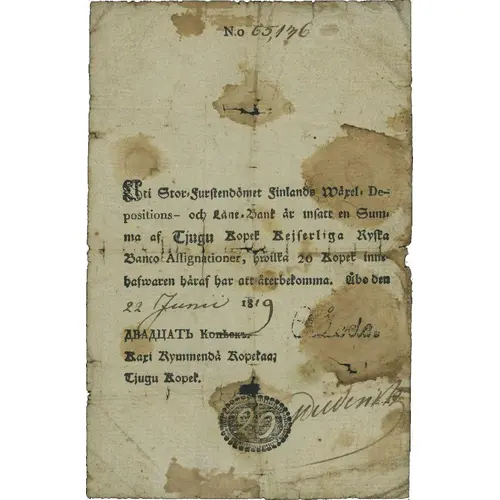 N.o 65,136
Uti Stor-Furstendömet Finlands Wäxel- De-
positions- och Låne-Bank är insatt en Sum-
ma af Tjugu Kopek Kejserliga Ryska
Banco Assignationer, hwilka 20 Kopek inne-
hafwaren häraf har att återbekomma. Åbo den
22 Junii 1819
ДВАДЦАТЬ Копѣекъ.
Kaxi Kymmendä Kopekaa;
Tjugu Kopek.
20